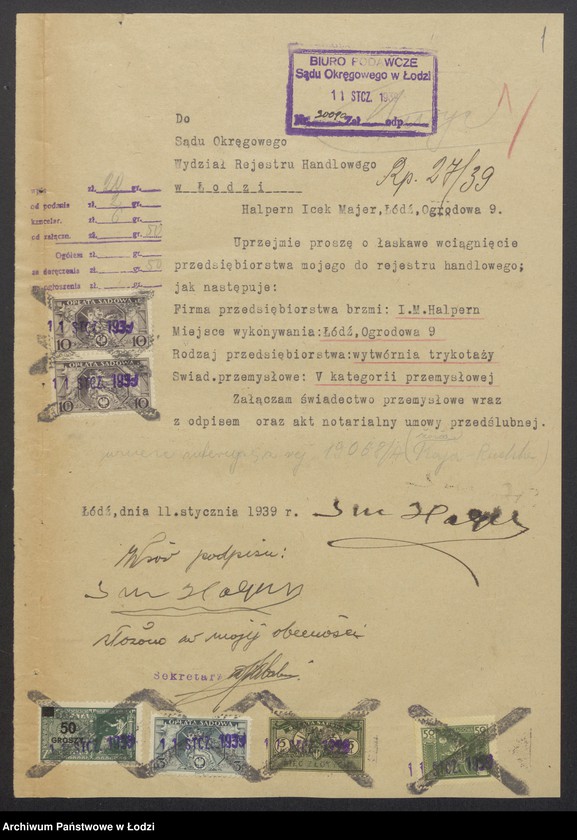 1
BIURO PODAWCZE
Sądu Okręgowego w Łodzi
11 STCZ. 193
Nr. Zał. odp.
Do
Sądu Okręgowego
Wydział Rejestru Handlowego
w Łodzi
Rp. 27/39
Halpern Icek Majer, Łódź, Ogrodowa 9.
wpis zł. gr.
od podania zł. gr.
kanceler. zł. gr.
od załącz. zł. gr. 50
Ogółem zł. gr.
za doręczenie zł. gr. 50
ogłoszenia zł. gr.
Uprzejmie proszę o łaskawe wciągnięcie
przedsiębiorstwa mojego do rejestru handlowego;
jak następuje:
Firma przedsiębiorstwa brzmi: I.M.Halpern
Miejsce wykonywania:Łódź,Ogrodowa 9
Rodzaj przedsiębiorstwa:wytwórnia trykotaży
Swiad.przemysłowe: V kategorii przemysłowej
Załączam świadectwo przemysłowe wraz
z odpisem oraz akt notarialny umowy przedślubnej.
OPŁATA SĄDOWA
11 STCZ. 1939
10 10
OPŁATA SĄDOWA
11 STCZ. 1939
10 10
Łódź,dnia 11.stycznia 1939 r.
Wzór podpisu:
złożono w mojej obecności
Sekretarz
50
GROSZY
11 STCZ. 1939
OPŁATA SĄDOWA
11 STCZ. 1939
11 STCZ. 1939
50 50
11 STCZ. 1939
Archiwum Państwowe w Łodzi